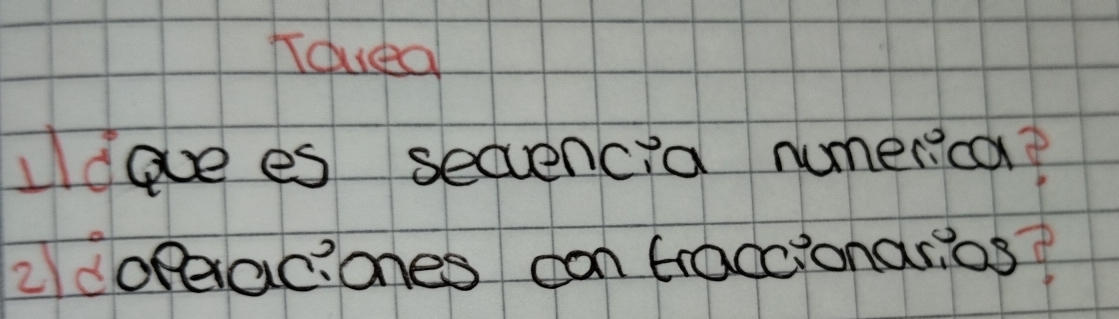 Tarea
1) ¿Que es secuencia numerica?
2) ¿operaciones con fraccionarios?